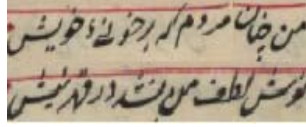 من چنان مردم که بر خونیء خویش
نوش لطف من نشد در قهر نیش